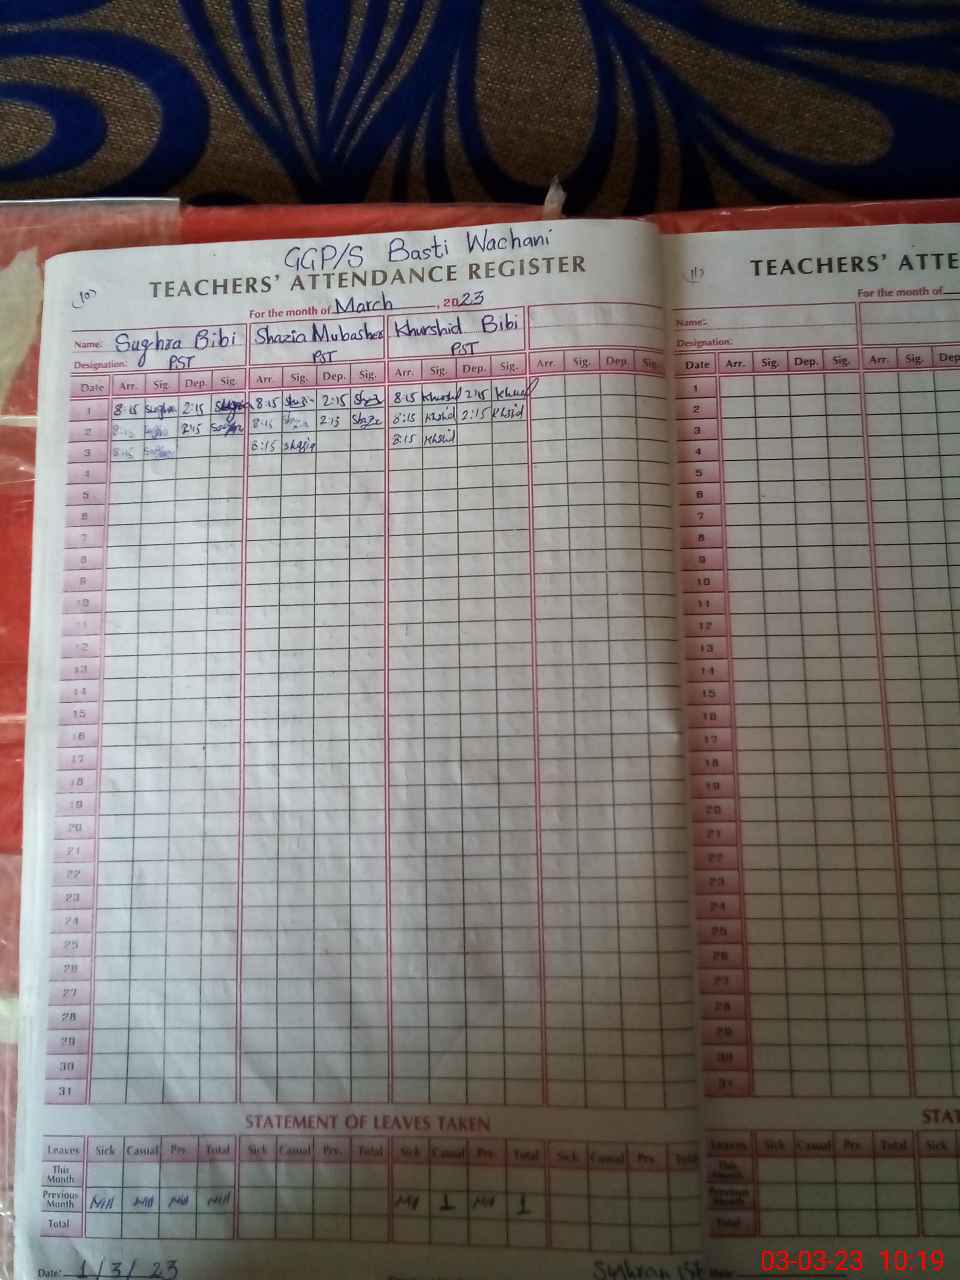 GGP/S Basti Wachani
(10) TEACHERS' ATTENDANCE REGISTER
For the month of March, 2023
Name: Sughra Bibi Shazia Mubasher Khurshid Bibi
Designation: PST PST PST
Date Arr. Sig. Dep. Sig. Arr. Sig. Dep. Sig. Arr. Sig. Dep. Sig. Arr. Sig. Dep. Sig.
1 8:15 Sughra 2:15 8:15 2:15 8:15 Khurshid 2:15
2 8:15 2:15 8:15 2:15 Shazia 8:15 Khshid 2:15 Khsid
3 8:15 8:15 Shazia 8:15 Khsid
4
5
6
7
8
9
10
11
12
13
14
15
16
17
18
19
20
21
22
23
24
25
26
27
28
29
30
31
STATEMENT OF LEAVES TAKEN
Leaves Sick Casual Prv. Total Sick Casual Prv. Total Sick Casual Prv. Total Sick Casual Prv. Total
This Month
Previous Month Nill Nill Nill Nill Nil 1 Nil 1
Total
Date: 1/3/23
(11) TEACHERS' ATTE
For the month of
Name:
Designation:
Date Arr. Sig. Dep. Sig. Arr. Sig. Dep
1
2
3
4
5
6
7
8
9
10
11
12
13
14
15
16
17
18
19
20
21
22
23
24
25
26
27
28
29
30
31
STAT
Leaves Sick Casual Prv. Total Sick
This Month
Previous Month
Total
03-03-23 10:19